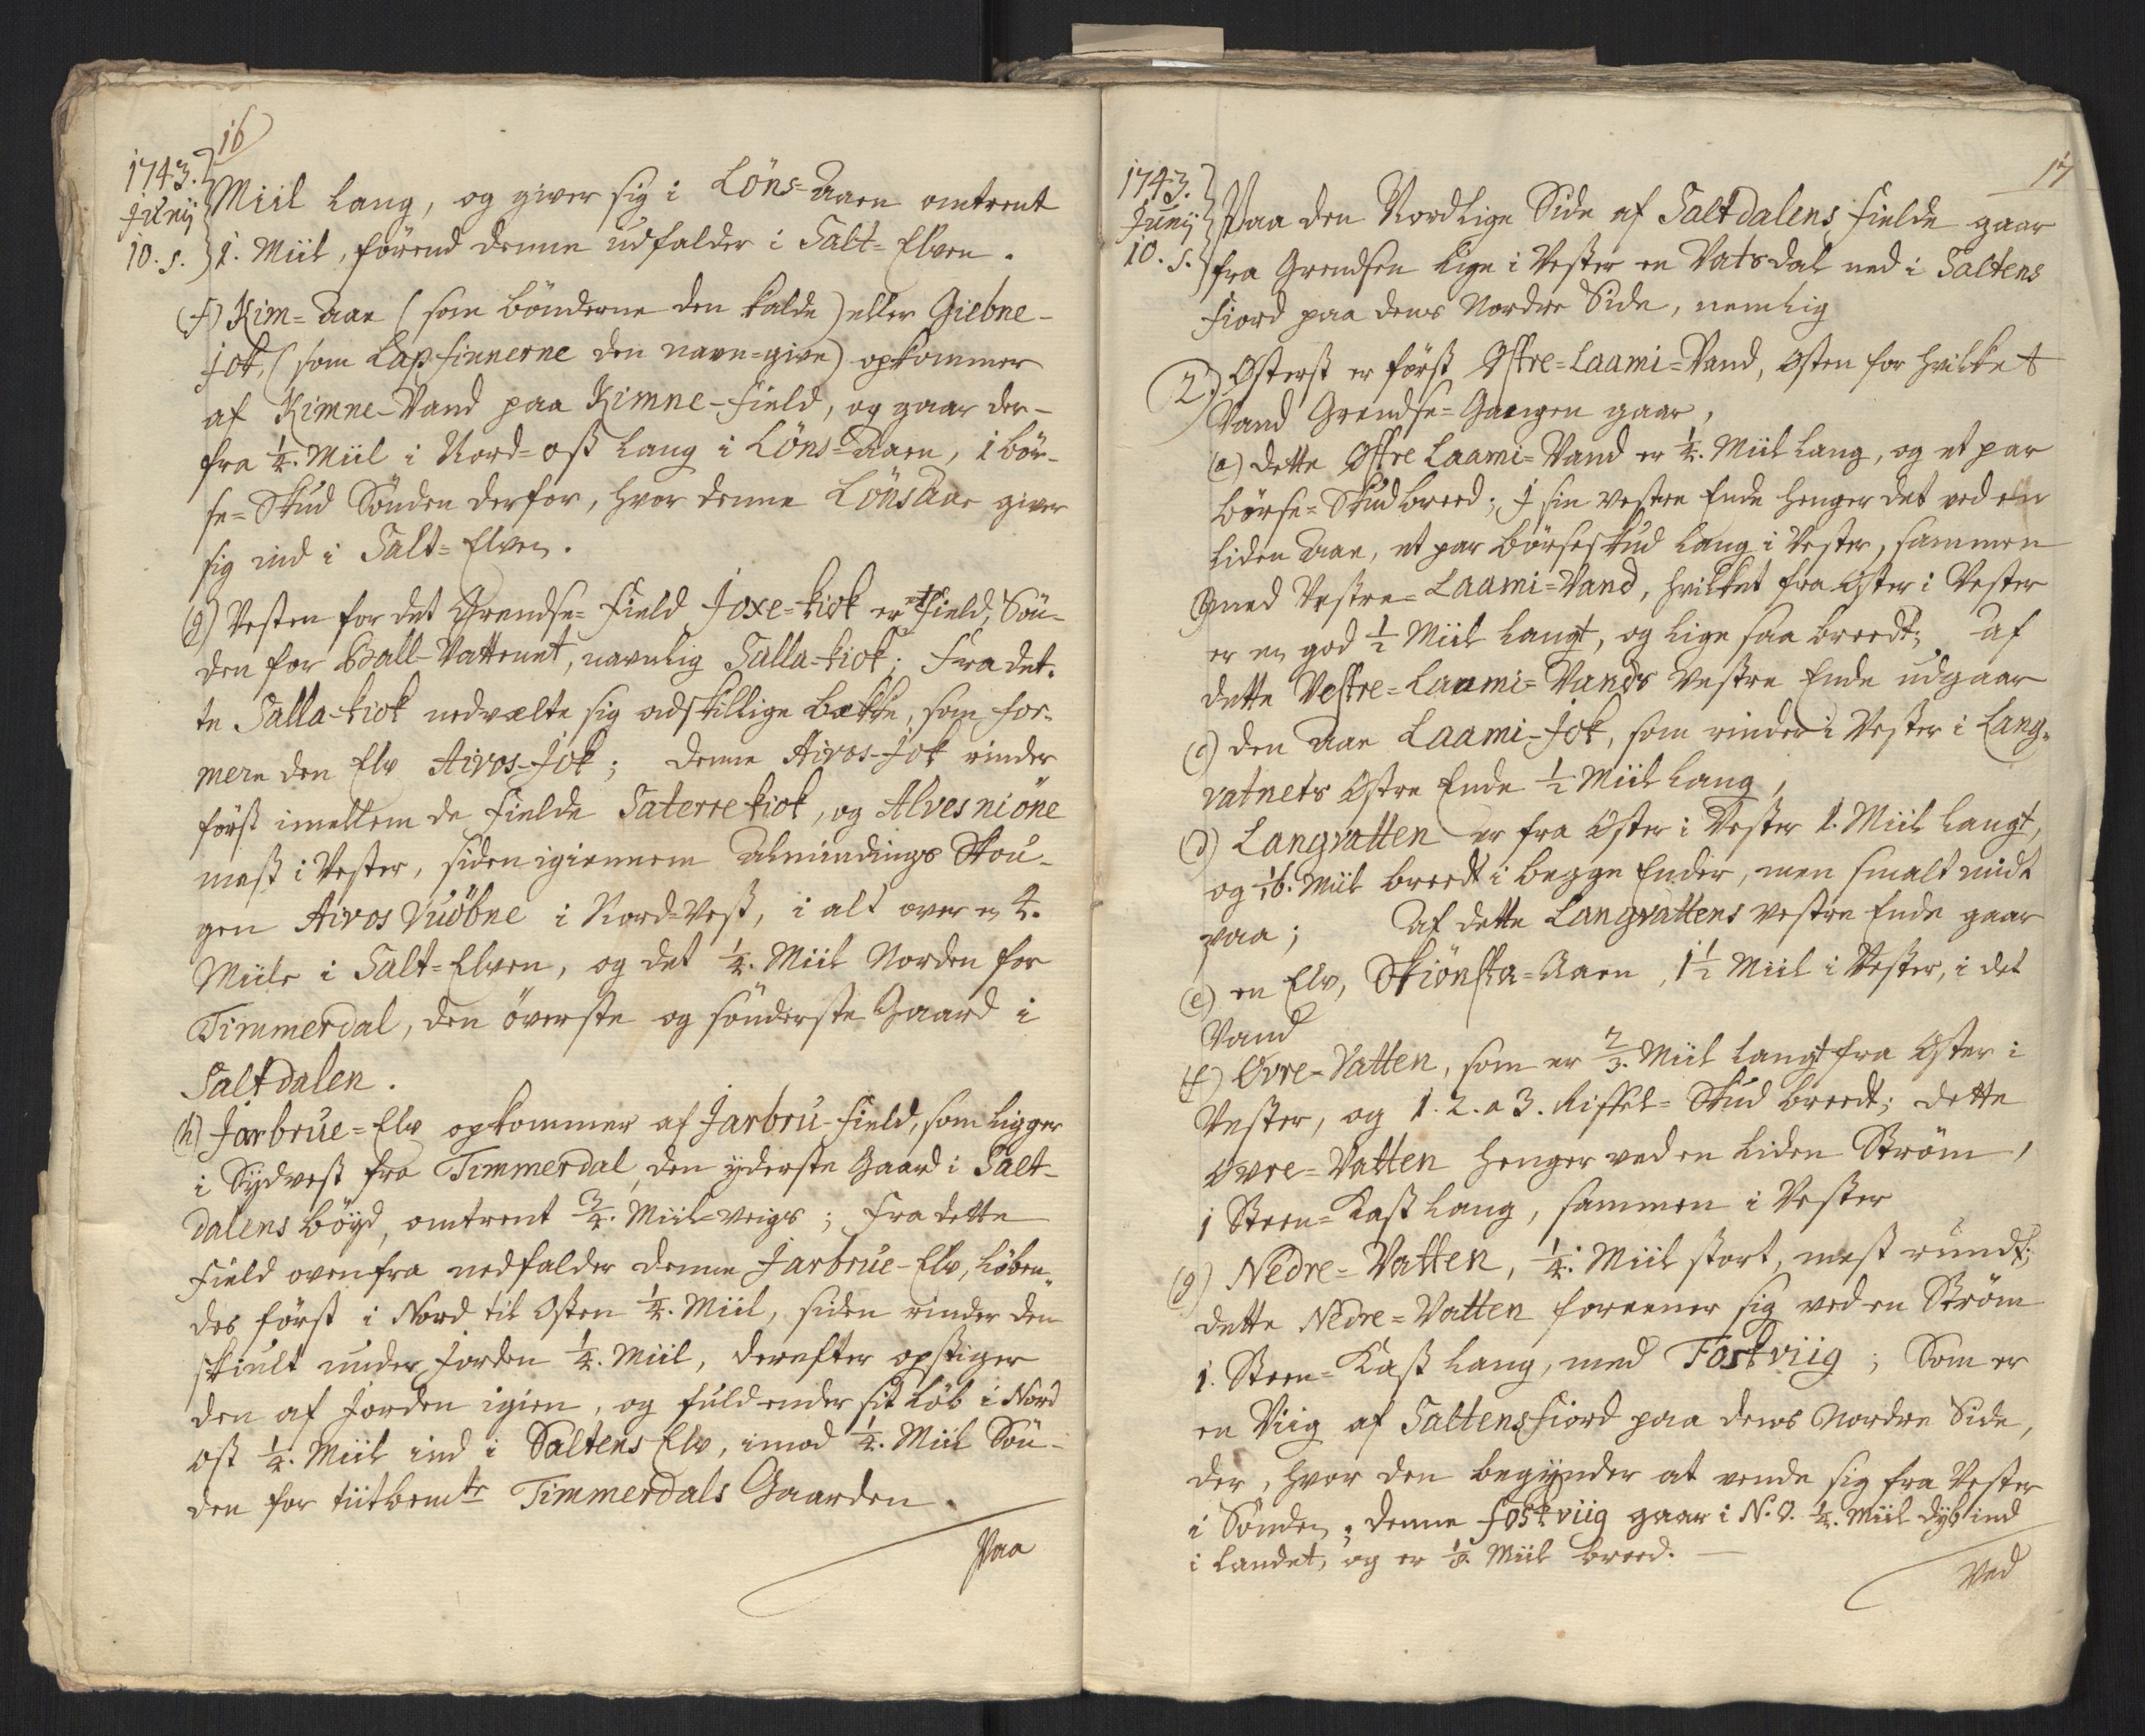 16
1743.
Juny
10. s.
Miil lang, og giver sig i Löns=Aaen omtrent
1. Miil, förend denne udfalder i Salt=Elven.
(f) Kim=Aae (som bönderne den kalde) eller Giebne-
jok, (som Lapfinnerne den navn=give) opkommer
af Kimne-Vand paa Kimne-Field, og gaar der-
fra 1/4. Miil i Nord=ost lang i Löns=Aaen, 1 bör-
se=Skud Sönden derfor, hvor denne Lönsaae giver
sig ind i Salt=Elven.
(g) Vesten for det Grendse=Field Joxe=kiok er et Field, Sön-
den for Ball-Vattenet, navnlig Salla-kiok; Fra det-
te Salla-kiok nedvælte sig adskillige bække, som for-
mere den Elv Aivos-Jok; denne Aivos-Jok rinder
först imellem de Fielde Saterrekiok, og Alvesniöne
mest i Vester, siden igiennem Almindings Skou-
gen Aivos Vuöbne i Nord=Vest, i alt over en 4.
Miile i Salt=Elven, og det 1/4. Miil Norden for
Timmerdal, den överste og sönderste Gaard i
Saltdalen.
(h) Jarbrue=Elv opkommer af Jarbru-Field, som ligger
i Sydvest fra Timmerdal, den yderste Gaard i Salt-
dalens böyd, omtrent 3/4. Miil=veigs; Fra dette
Field ovenfra nedfalder denne Jarbrue-Elv, löben-
des först i Nord til Osten 1/4. Miil, siden rinder den
skiult under Jorden 1/4. Miil, derefter opstiger
den af Jorden igien, og fuldender sit löb i Nord
ost 1/4. Miil ind i Saltens Elv, imod 1/4. Miil Sön-
den for tiitbemte Timmerdals Gaarden.
Paa
17
1743.
Juny
10. s.
Paa den Nordlige Side af Saltdalens Fielde gaar
fra Grendsen lige i Vester en Vatsdal ned i Saltens
Fiord paa dens Nordre Side, nemlig
2.) Österst er först Östre=Laami=Vand, Osten for hvilket
Vand Grendse=Gangen gaar,
(a) dette Östre Laami=Vand er 1/4. Miil lang, og et par
börse=Skud breed; J sin vestre Ende henger det ved en
liden Aae, et par börseskud lang i Vester, sammen
med Vestre=Laami=Vand, hvilket fra Öster i Vester
er en god 1/2 Miil langt, og lige saa breedt; af
dette Vestre=Laami=Vands Vestre Ende udgaar
(c) den Aae Laami-Jok, som rinder i Vester i Lang-
vatnets Östre Ende 1/2 Miil lang,
(d) Langvatten er fra Öster i Vester 1. Miil langt,
og 1/16. Miil breedt i begge Ender, men smalt midt
paa; af dette Langvattens Vestre Ende gaar
(e) en Elv, Skiönsta=Aaen, 1 1/2 Miil i Vester, i det
Vand
(f) Övre=Vatten, som er 2/3. Miil langt fra Öster i
Vester, og 1. 2. a 3. Riffel=Skud breedt; dette
Övre=Vatten henger ved en liden Ström,
1 Steen=Kast lang, sammen i Vester
(g) Nedre=Vatten, 1/4. Miil stort, mest rundt;
dette Nedre=Vatten foreener sig ved en Ström
1. Steen=Kast lang, med Foskviig; Som er
en Viig af Saltensfiord paa dens Nordre Side,
der, hvor den begynder at vende sig fra Vester
i Sönden; denne Foskviig gaar i N.O. 1/4. Miil dyb ind
i Landet, og er 1/8. Miil breed.
Ved